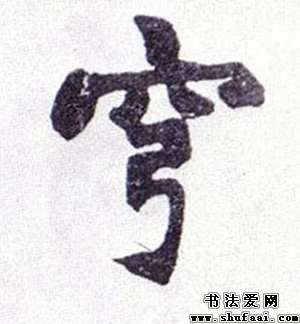 穹
书法爱网
www.shufaai.com